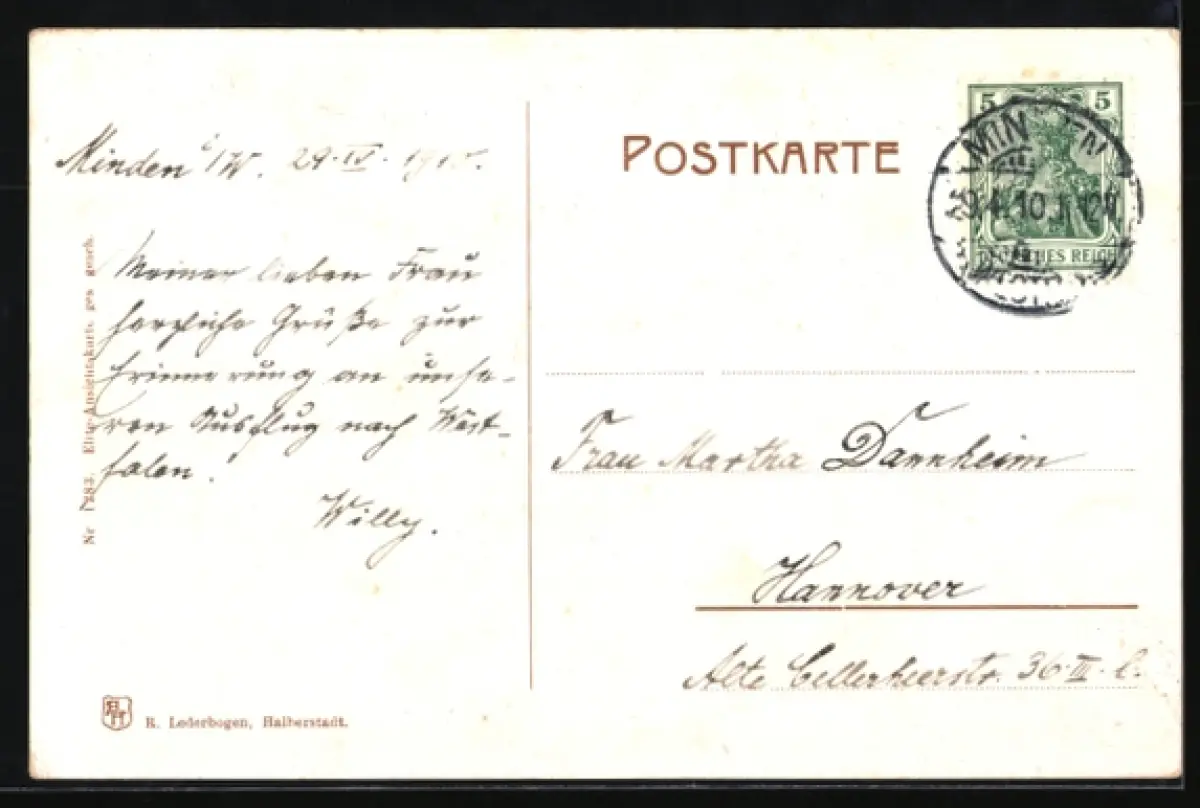 Minden i/W. 29. IV. 1910.
Meiner lieben Frau
herzliche Grüße zur
Erinnerung an unse-
ren Ausflug nach West-
falen.
Willy.
Nr 1283. Elite-Ansichtskarte, ges. gesch.
R. Lederbogen, Halberstadt.
POSTKARTE
5 5
DEUTSCHES REICH
MINDEN
9.4.10.
Frau Martha Dannheim
Hannover
Alte Cellerheerstr. 36 III. l.